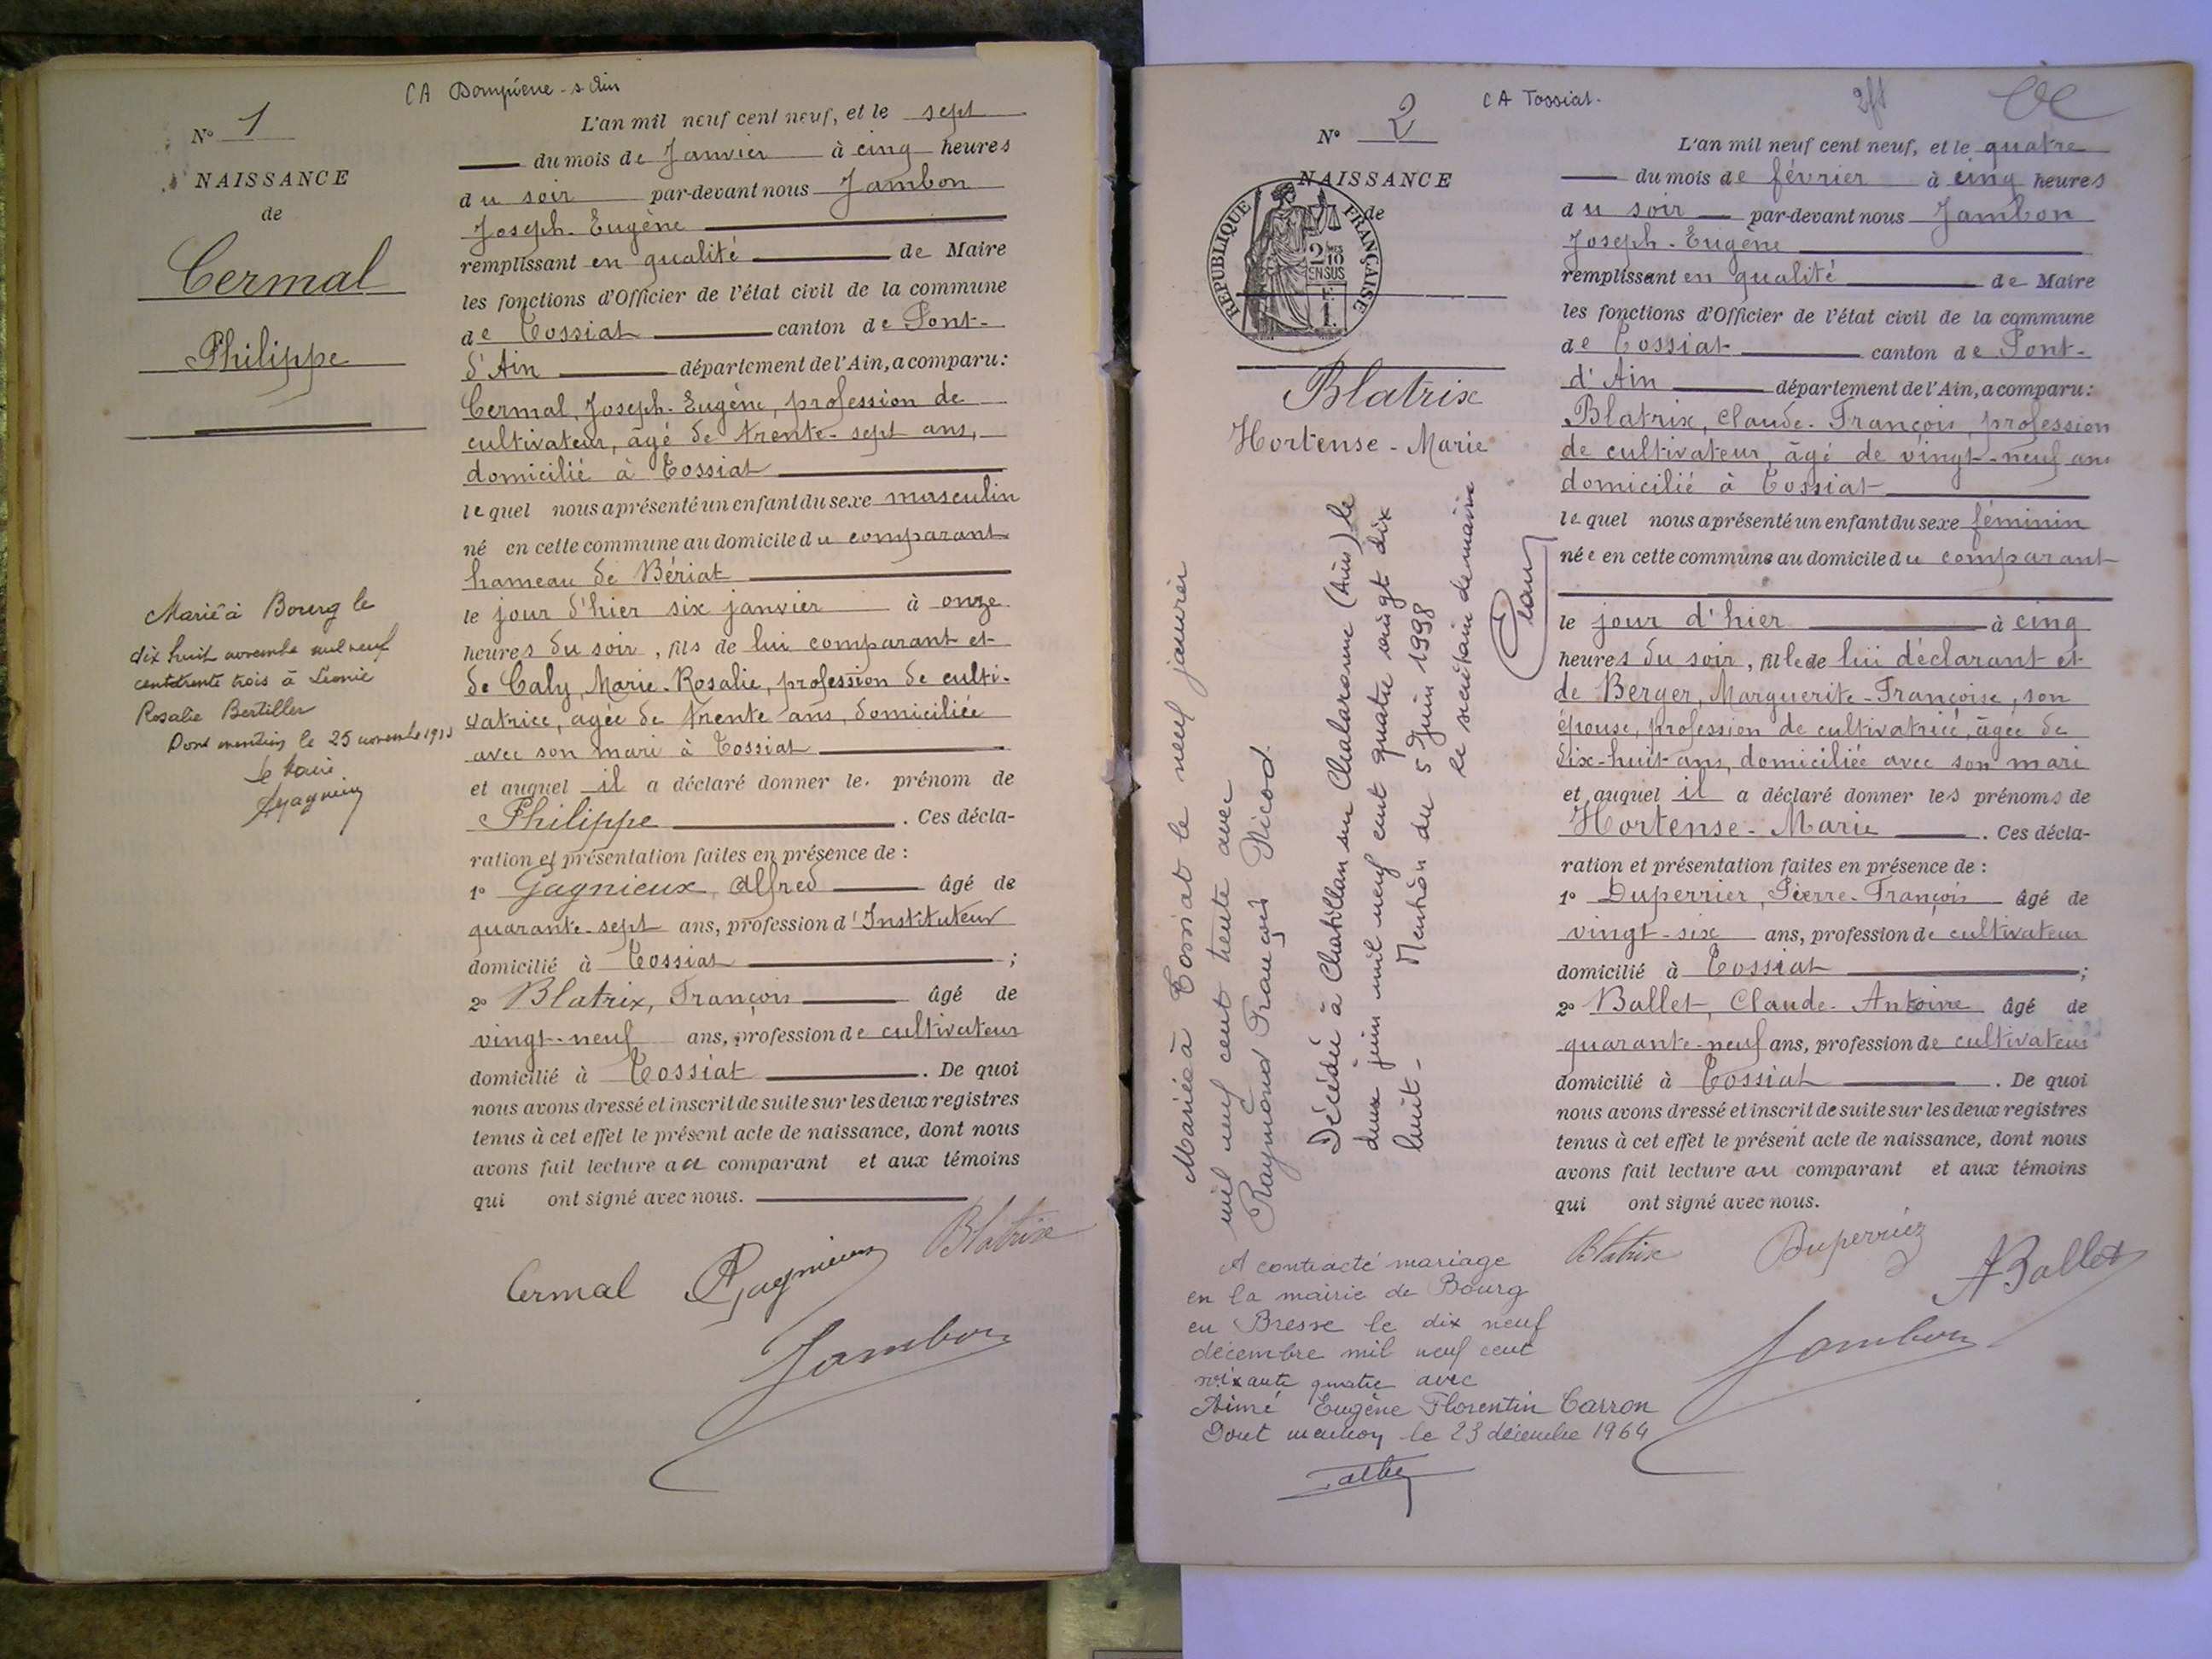 CA Dompierre - s Ain
N° 1
NAISSANCE
de
Cermal
Philippe
Marié à Bourg le
dix huit novembre mil neuf
cent trente trois à Léonie
Rosalie Bertiller
Dont mention le 25 novembre 1933
Le Maire
L'an mil neuf cent neuf, et le sept
du mois de Janvier à cinq heures
du soir par-devant nous Jambon
Joseph-Eugène
remplissant en qualité de Maire
les fonctions d'Officier de l'état civil de la commune
de Tossiat canton de Pont-
d'Ain département de l'Ain, a comparu:
Cermal, Joseph-Eugène, profession de
cultivateur, âgé de trente-sept ans,
domicilié à Tossiat
lequel nous a présenté un enfant du sexe masculin
né en cette commune au domicile du comparant
hameau de Bériat
le jour d'hier six janvier à onze
heures du soir, fils de lui comparant et
de Caly, Marie-Rosalie, profession de culti-
vatrice, agée de trente ans, domiciliée
avec son mari à Tossiat
et auquel il a déclaré donner le. prénom de
Philippe. Ces décla-
ration et présentation faites en présence de :
1° Gagnieux, Alfred âgé de
quarante-sept ans, profession d'Instituteur
domicilié à Tossiat ;
2° Blatrix, François âgé de
vingt-neuf ans, profession de cultivateur
domicilié à Tossiat. De quoi
nous avons dressé et inscrit de suite sur les deux registres
tenus à cet effet le présent acte de naissance, dont nous
avons fait lecture au comparant et aux témoins
qui ont signé avec nous.
Cermal Gagnieux Blatrix
Jambon
CA Tossiat.
N° 2
NAISSANCE
de
REPUBLIQUE FRANÇAISE
2/10
EN SUS
Blatrix
Hortense-Marie
Mariée à Tossiat le neuf janvier
mil neuf cent trente avec
Raymond François Nicod
Décédée à Chatillon sur Chalaronne (Ain) le
deux juin mil neuf cent quatre vingt dix
huit -
Mention du 5 Juin 1998
le secrétaire de mairie
A contracté mariage
en la mairie de Bourg
en Bresse le dix neuf
décembre mil neuf cent
soixante quatre avec
Aimé Eugène Florentin Carron
Dont mention le 23 décembre 1964
L'an mil neuf cent neuf, et le quatre
du mois de février à cinq heures
du soir par-devant nous Jambon
Joseph-Eugène
remplissant en qualité de Maire
les fonctions d'Officier de l'état civil de la commune
de Tossiat canton de Pont-
d'Ain département de l'Ain, a comparu:
Blatrix, Claude-François, profession
de cultivateur, âgé de vingt-neuf ans
domicilié à Tossiat
lequel nous a présenté un enfant du sexe féminin
née en cette commune au domicile du comparant
le jour d'hier à cinq
heures du soir, fille de lui déclarant et
de Berger, Marguerite-Françoise, son
épouse, profession de cultivatrice, âgée de
dix-huit ans, domiciliée avec son mari
et auquel il a déclaré donner les prénoms de
Hortense-Marie. Ces décla-
ration et présentation faites en présence de :
1° Duperrier, Pierre-François âgé de
vingt-six ans, profession de cultivateur
domicilié à Tossiat ;
2° Ballet, Claude-Antoine âgé de
quarante-neuf ans, profession de cultivateur
domicilié à Tossiat. De quoi
nous avons dressé et inscrit de suite sur les deux registres
tenus à cet effet le présent acte de naissance, dont nous
avons fait lecture au comparant et aux témoins
qui ont signé avec nous.
Blatrix Duperriez ABallet
Jambon